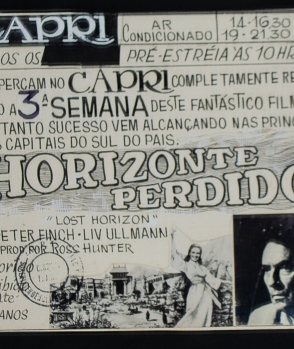 CAPRI
AR CONDICIONADO
14-16,30
19-21,30
OS OS
PRÉ-ESTRÉIA ÀS 10 HR
PERCAM NO CAPRI COMPLETAMENTE RE
O A 3ª SEMANA DESTE FANTÁSTICO FILM
TANTO SUCESSO VEM ALCANÇANDO NAS PRINC
S CAPITAIS DO SUL DO PAÍS.
HORIZONTE
PERDIDO
"LOST HORIZON"
PETER FINCH · LIV ULLMANN
PROD. POR ROSS HUNTER
ANOS